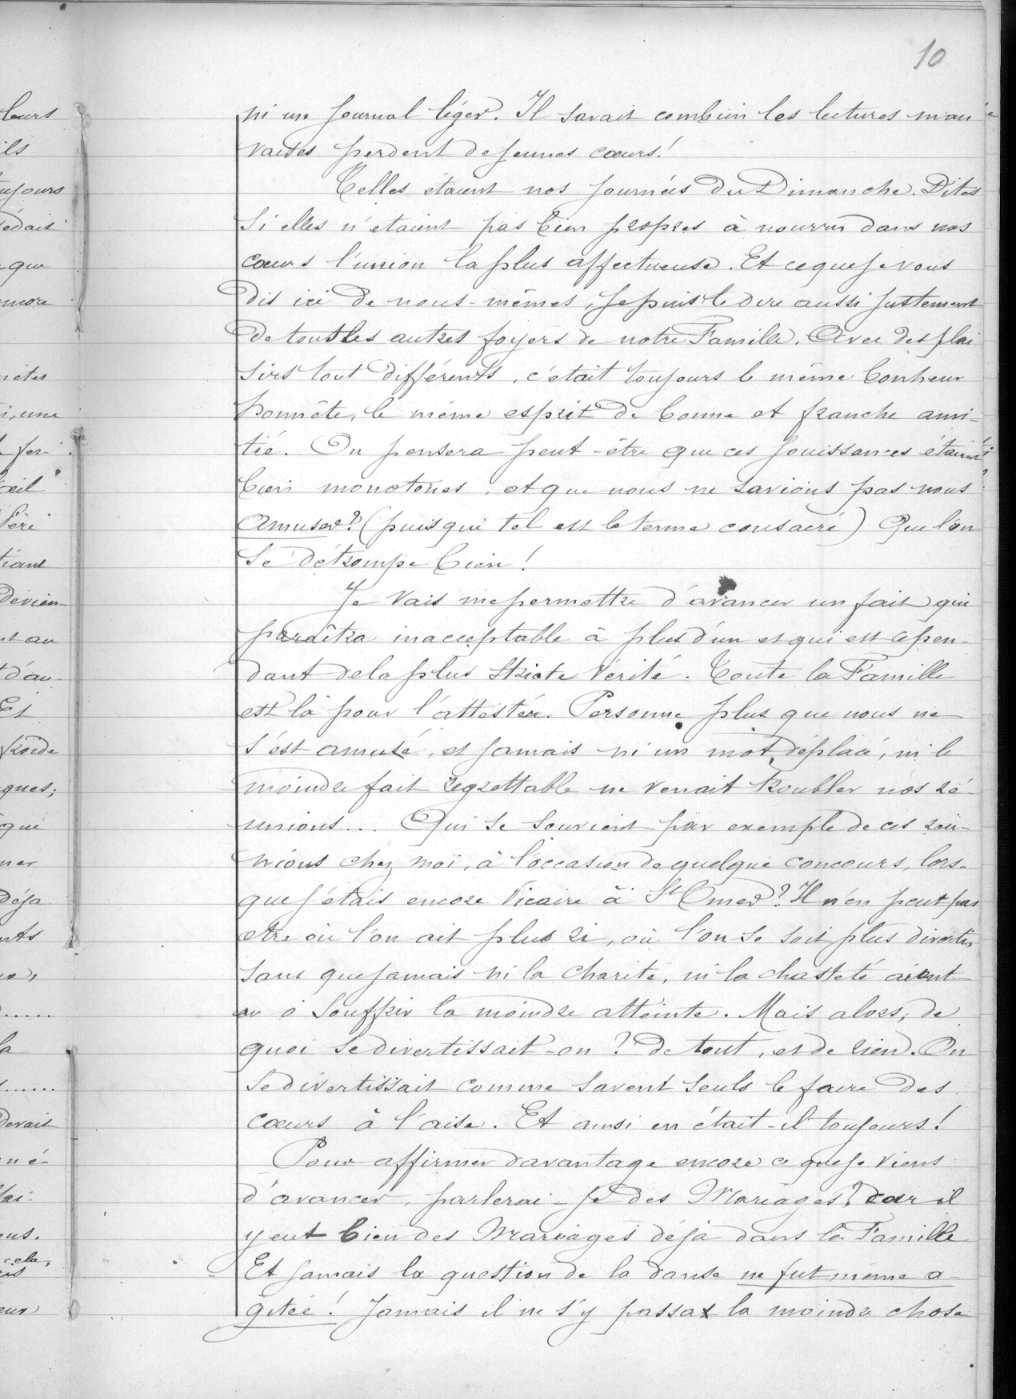 10
ni un journal léger. Il savait combien les lectures mau
vaises perdent de jeunes cœurs!
Telles étaient nos journées du Dimanche. Dites
si elles n'étaient pas bien propres à nourrir dans nos
cœurs l'union la plus affectueuse. Et ce que je vous
dis ici de nous-mêmes, je puis le dire aussi justement
de tous les autres foyers de notre Famille. Avec des plai
sirs tout différents, c'était toujours le même bonheur
honnête, le même esprit de bonne et franche ami-
tié. On pensera peut-être que ces jouissances étaient
bien monotones, et que nous ne savions pas nous
amuser? (puisque tel est le terme consacré) Que l'on
se détrompe bien!
Je vais me permettre d'avancer un fait qui
paraîtra inacceptable à plus d'un et qui est cepen-
dant de la plus stricte vérité. Toute la Famille
est là pour l'attester. Personne plus que nous ne
s'est amusé, et jamais ni un mot déplacé, ni le
moindre fait regrettable ne venait troubler nos ré-
unions... Qui se souvient par exemple de ces réu-
nions chez moi, à l'occasion de quelque concours, lors-
que j'étais encore Vicaire à St Omer? Il n'en peut pas
etre où l'on ait plus ri, où l'on se soit plus divertis,
sans que jamais ni la charité, ni la chasteté aient
eu à souffrir la moindre atteinte. Mais alors, de
quoi se divertissait-on? de tout, et de rien. On
se divertissait comme savent seuls le faire des
cœurs à l'aise. Et ainsi en était-il toujours!
Pour affirmer davantage encore ce que je viens
d'avancer, parlerai-je des Mariages? car il
y eut bien des Mariages déjà dans la Famille
Et jamais la question de la danse ne fut même a-
gitée! Jamais il ne s'y passa la moindre chose